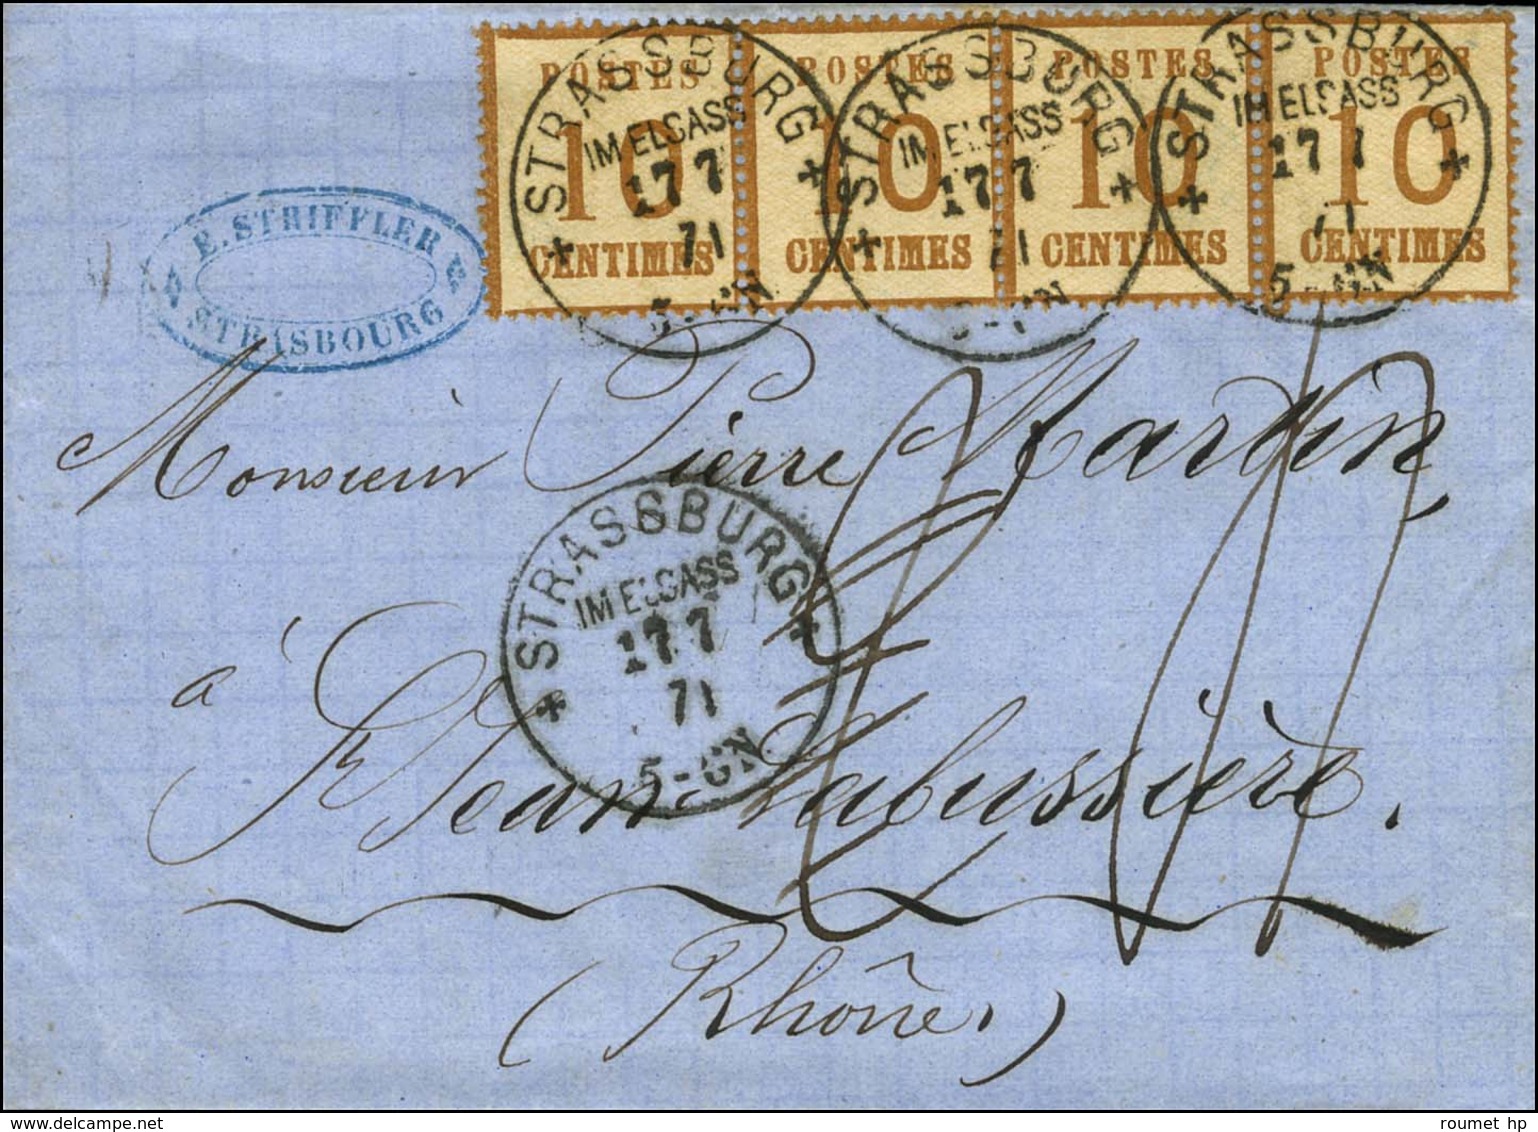 POSTES POSTES POSTES POSTES
10 10 10 10
CENTIMES CENTIMES CENTIMES CENTIMES
STRASSBURG
IM ELSASS
17 7
71
5-6N
STRASSBURG
IM ELSASS
17 7
71
STRASSBURG
IM ELSASS
17 7
71
5-6N
E. STRIFFLER
STRASBOURG
Monsieur Pierre Martin,
STRASSBURG
IM ELSASS
17 7
71
5-6N
à
St Jean-Labussière.
(Rhône.)
roumet hp